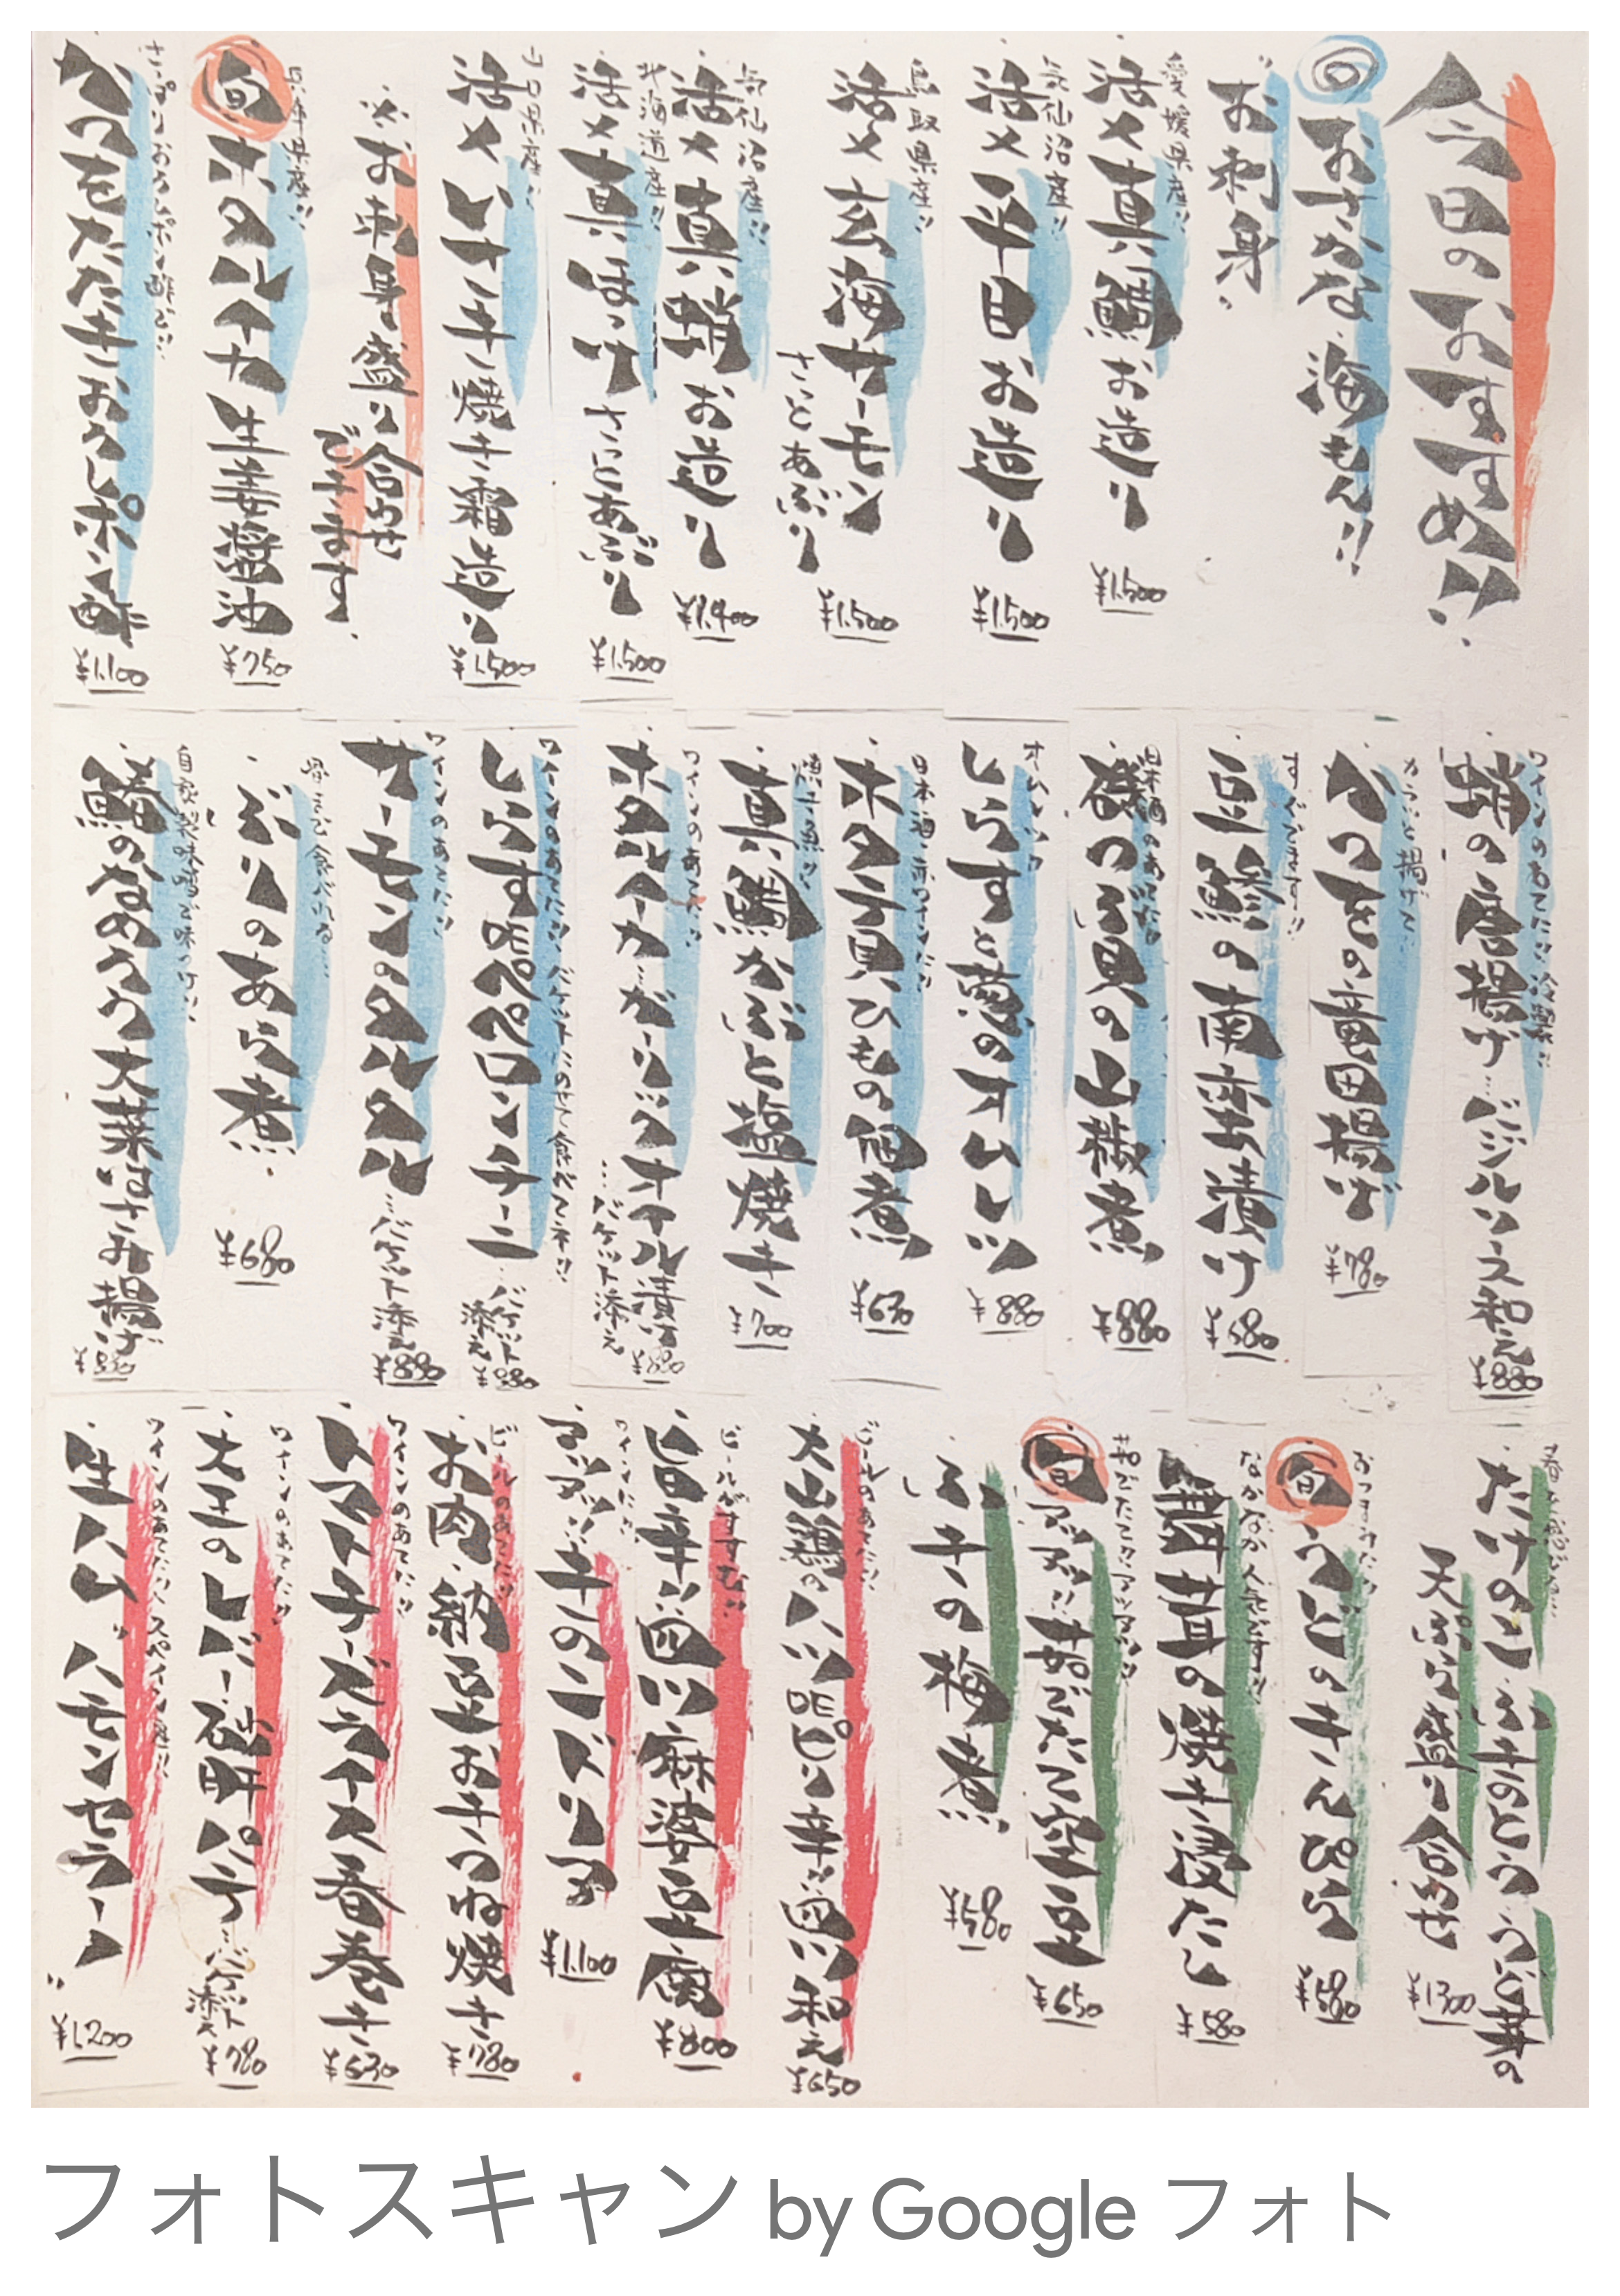 今日のおすすめ!!
おさかな・海もん!!
お刺身
愛媛県産!!
活〆真鯛お造り
¥1,500
気仙沼産!!
活〆平目お造り
¥1,500
鳥取県産!!
活〆玄海サーモン
さっとあぶり
¥1,500
気仙沼産!!
活〆真蛸お造り
¥1,400
北海道産!!
活〆真ほっけさっとあぶり
¥1,500
山口県産!!
活〆いサキ焼き霜造り
¥1,500
※お刺身盛り合わせ
できます
兵庫県産!!
旬ホタルイカ生姜醤油
¥750
さっぱりおろしポン酢で!!
かつをたたきおろしポン酢
¥1,100
ワインのあてに!!冷製!!
蛸の唐揚げ…バジルソース和え
¥880
カラッと揚げて
かつをの竜田揚げ
¥780
すぐできます!!
豆鯵の南蛮漬け
¥580
日本酒のあてに!!
磯つぶ貝の山椒煮
¥880
オムレツ
しらすと葱のオムレツ
¥880
日本酒・赤ワインに!!
ホタテ貝ひもの佃煮
¥630
焼き魚!!
真鯛かぶと塩焼き
¥700
ワインのあてに!!
ホタルイカガーリックオイル漬け
…バケット添え
¥880
ワインのあてに!!バケットにのせて食べてネ!!
しらすDEペペロンチーニ…バケット
添え
¥880
ワインのあてに!!
サーモンタルタル…バケット添え
¥880
骨まで食べれる…
ぶりのあら煮
¥680
自家製味噌で味つけ!!
鯵のなめろう大葉はさみ揚げ
¥880
たけのこ・ふきのとう・うど芽の
天ぷら盛り合わせ
¥1,300
おつまみに!!
旬うどのきんぴら
¥580
なかなか人気です!!
舞茸の焼き浸たし
¥580
茹でたてアツアツ!!
旬アツアツ!!茹でたて空豆
¥650
ふきの梅煮
¥580
ビールのあてに!!
大山鶏のハツDEピリ辛ユッケ和え
¥650
ビールがすすむ!!
旨辛四川麻婆豆腐
¥800
ワインに!!
アツアツ!!牛のニンドリア
¥1,100
ビールのあてに!!
お肉・納豆お手つね焼き
¥780
ワインのあてに!!
トマトチーズライス春巻き
¥630
ワインのあてに!!
大王のレバー・砂肝パテ…バケット
添え
¥780
ワインのあてに!!スペイン産!!
生ハム"ハモンセラーノ"
¥1,200
フォトスキャン by Google フォト